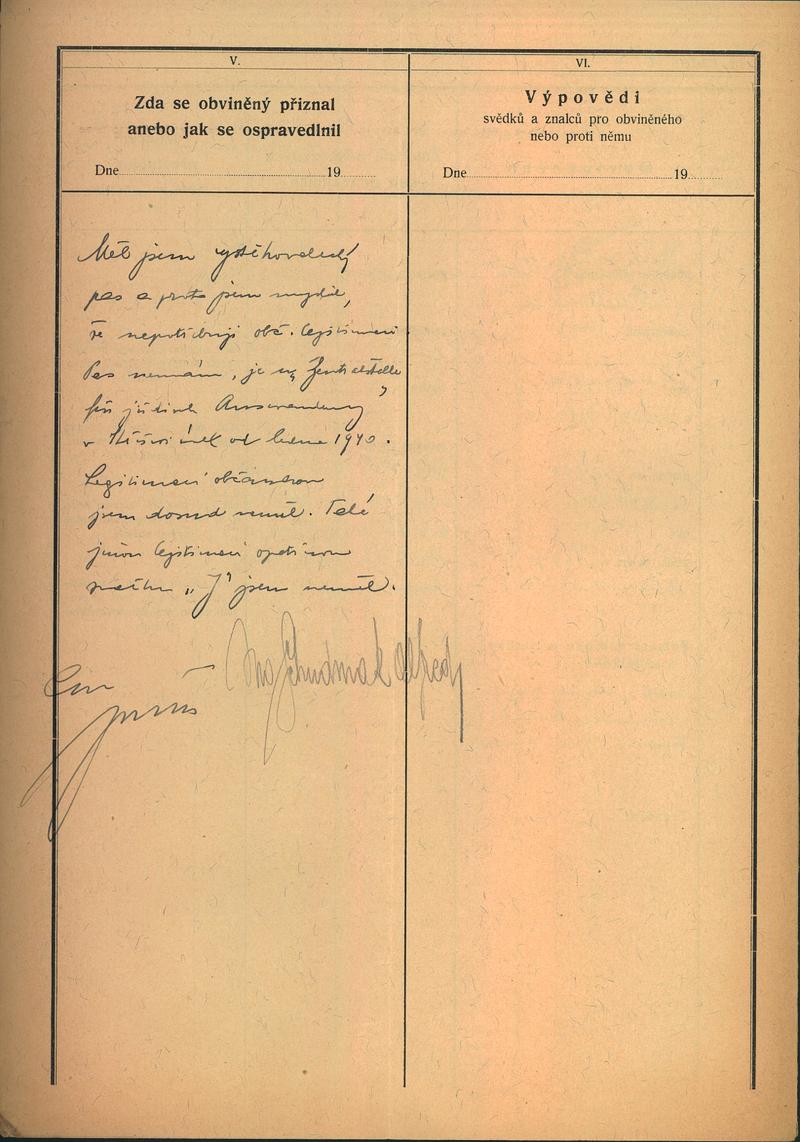 V.
Zda se obviněný přiznal
anebo jak se ospravedlnil
Dne 19
VI.
Výpovědi
svědků a znalců pro obviněného
nebo proti němu
Dne 19
Měl jsem vystěhovalecký
pas a proto jsem myslil,
že nepotřebuji obč. legitimaci
Pas nemám, je u Zentralstelle
für jüdische Auswanderung
v Střešovicích od ledna 1940.
Legitimaci občanskou
jsem dosud neměl. Také
jinou legitimaci opatřenou
značkou „J" jsem neměl.
Alfred